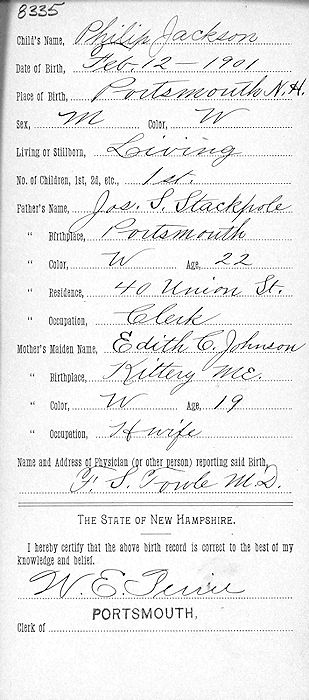 8335
Child's Name, Philip Jackson
Date of Birth, Feb. 12 – 1901
Place of Birth, Portsmouth N.H.
Sex, M Color, W
Living or Stillborn, Living
No. of Children, 1st, 2d, etc., 1st.
Father's Name, Jos. S. Stackpole
" Birthplace, Portsmouth
" Color, W Age, 22
" Residence, 40 Union St.
" Occupation, Clerk
Mother's Maiden Name, Edith C. Johnson
" Birthplace, Kittery Me.
" Color, W Age, 19
" Occupation, H wife
Name and Address of Physician (or other person) reporting said Birth,
F. S. Towle M.D.
THE STATE OF NEW HAMPSHIRE.
I hereby certify that the above birth record is correct to the best of my
knowledge and belief.
W. E.
PORTSMOUTH,
Clerk of